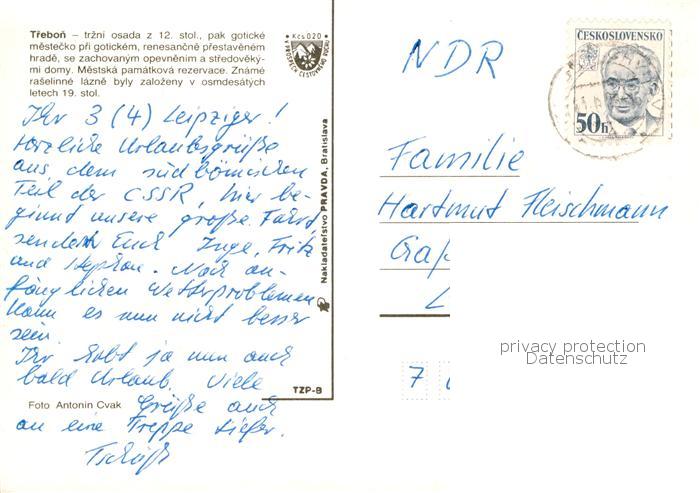 Třeboň – tržní osada z 12. stol., pak gotické
městečko při gotickém, renesančně přestavěném
hradě, se zachovaným opevněním a středověký-
mi domy. Městská památková rezervace. Známé
rašelinné lázně byly založeny v osmdesátých
letech 19. stol.
Kčs 0.20
V PROSPĚCH CESTOVNÍHO RUCHU
Ihr 3 (4) Leipziger!
Herzliche Urlaubsgrüße
aus dem südböhmischen
Teil der CSSR, hier be-
ginnt unsere große Fahrt,
senden Euch Inge, Fritz
und Stephan. Nach an-
fänglichen Wetterproblemen
kann es nun nicht besser
sein.
Ihr habt ja nun auch
bald Urlaub. Viele
Grüße auch
an eine Treppe tiefer.
Tschüß
Foto Antonín Cvak
TZP-B
Nakladatelství PRAVDA, Bratislava
ČESKOSLOVENSKO
50h
NDR
Familie
Hartmut Fleischmann
Gra
L
7
privacy protection
Datenschutz